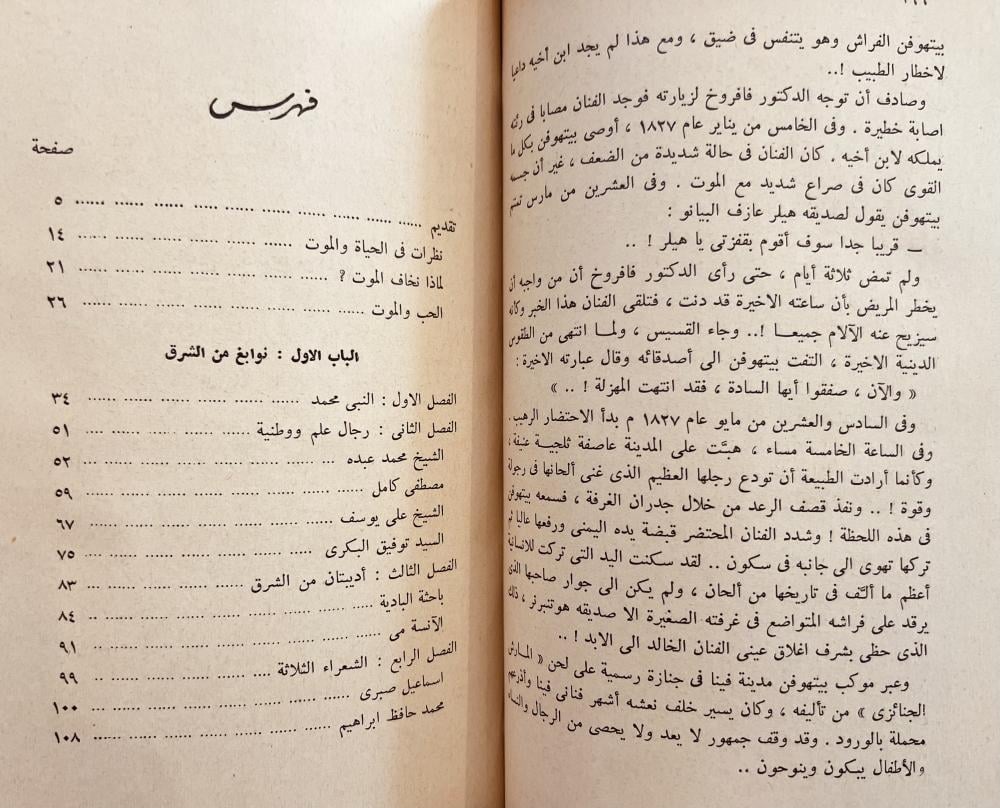 بيتهوفن الفراش وهو يتنفس فى ضيق ، ومع هذا لم يجد ابن أخيه داعيا
لاخطار الطبيب !..
وصادف أن توجه الدكتور فافروخ لزيارته فوجد الفنان مصابا فى رئته
اصابة خطيرة . وفى الخامس من يناير عام ١٨٢٧ ، أوصى بيتهوفن بكل ما
يملكه لابن أخيه . كان الفنان فى حالة شديدة من الضعف ، غير أن جسمه
القوى كان فى صراع شديد مع الموت . وفى العشرين من مارس تمتم
بيتهوفن يقول لصديقه هيلر عازف البيانو :
ـ قريبا جدا سوف أقوم بقفزتى يا هيلر ! ..
ولم تمض ثلاثة أيام ، حتى رأى الدكتور فافروخ أن من واجبه أن
يخطر المريض بأن ساعته الاخيرة قد دنت ، فتلقى الفنان هذا الخبر وكأنه
سيزيح عنه الآلام جميعا !.. وجاء القسيس ، ولما انتهى من الطقوس
الدينية الاخيرة ، التفت بيتهوفن الى أصدقائه وقال عبارته الاخيرة :
« والآن ، صفقوا أيها السادة ، فقد انتهت المهزلة ! .. »
وفى السادس والعشرين من مايو عام ١٨٢٧ م بدأ الاحتضار الرهيب .
وفى الساعة الخامسة مساء ، هبَّت على المدينة عاصفة ثلجية عنيفة ،
وكأنما أرادت الطبيعة أن تودع رجلها العظيم الذى غنى ألحانها فى رجولة
وقوة ! .. ونفذ قصف الرعد من خلال جدران الغرفة ، فسمعه بيتهوفن
فى هذه اللحظة ! وشدد الفنان المحتضر قبضة يده اليمنى ورفعها عاليا ثم
تركها تهوى الى جانبه فى سكون .. لقد سكنت اليد التى تركت للانسانية
أعظم ما ألَّف فى تاريخها من ألحان ، ولم يكن الى جوار صاحبها الذى
يرقد على فراشه المتواضع فى غرفته الصغيرة الا صديقه هوتنبرنر ، ذلك
الذى حظى بشرف اغلاق عينى الفنان الخالد الى الابد ! ..
وعبر موكب بيتهوفن مدينة فينا فى جنازة رسمية على لحن « المارش
الجنائزى » من تأليفه ، وكان يسير خلف نعشه أشهر فنانى فينا وأذرعهم
محملة بالورود . وقد وقف جمهور لا يعد ولا يحصى من الرجال والنساء
والأطفال يبكون وينوحون ..
فهرس
صفحة
تقديم ...... ...... ...... ...... ...... ...... ...... ٥
نظرات فى الحياة والموت ...... ...... ...... ...... ...... ١٤
لماذا نخاف الموت ؟ ...... ...... ...... ...... ...... ...... ٢١
الحب والموت ...... ...... ...... ...... ...... ...... ٢٦
الباب الاول : نوابغ من الشرق
الفصل الاول : النبى محمد ...... ...... ...... ...... ...... ٣٤
الفصل الثانى : رجال علم ووطنية ...... ...... ...... .... ٥١
الشيخ محمد عبده ... ...... ...... ...... ...... ... ٥٢
مصطفى كامل ...... ...... ...... ...... ...... ... ٥٩
الشيخ على يوسف ...... ...... ...... ...... ...... ٦٧
السيد توفيق البكرى .... ...... ...... ...... ...... ٧٥
الفصل الثالث : أديبتان من الشرق ...... ...... ...... ... ٨٣
باحثة البادية ...... ...... ...... ...... ...... .. ٨٤
الآنسة مى ...... ...... ...... ...... ...... ...... ٩١
الفصل الرابع : الشعراء الثلاثة .... ...... ...... ...... .. ٩٩
اسماعيل صبرى ...... ...... ...... ...... ...... .. ١٠٠
محمد حافظ ابراهيم ...... ...... ...... ...... ...... ١٠٨